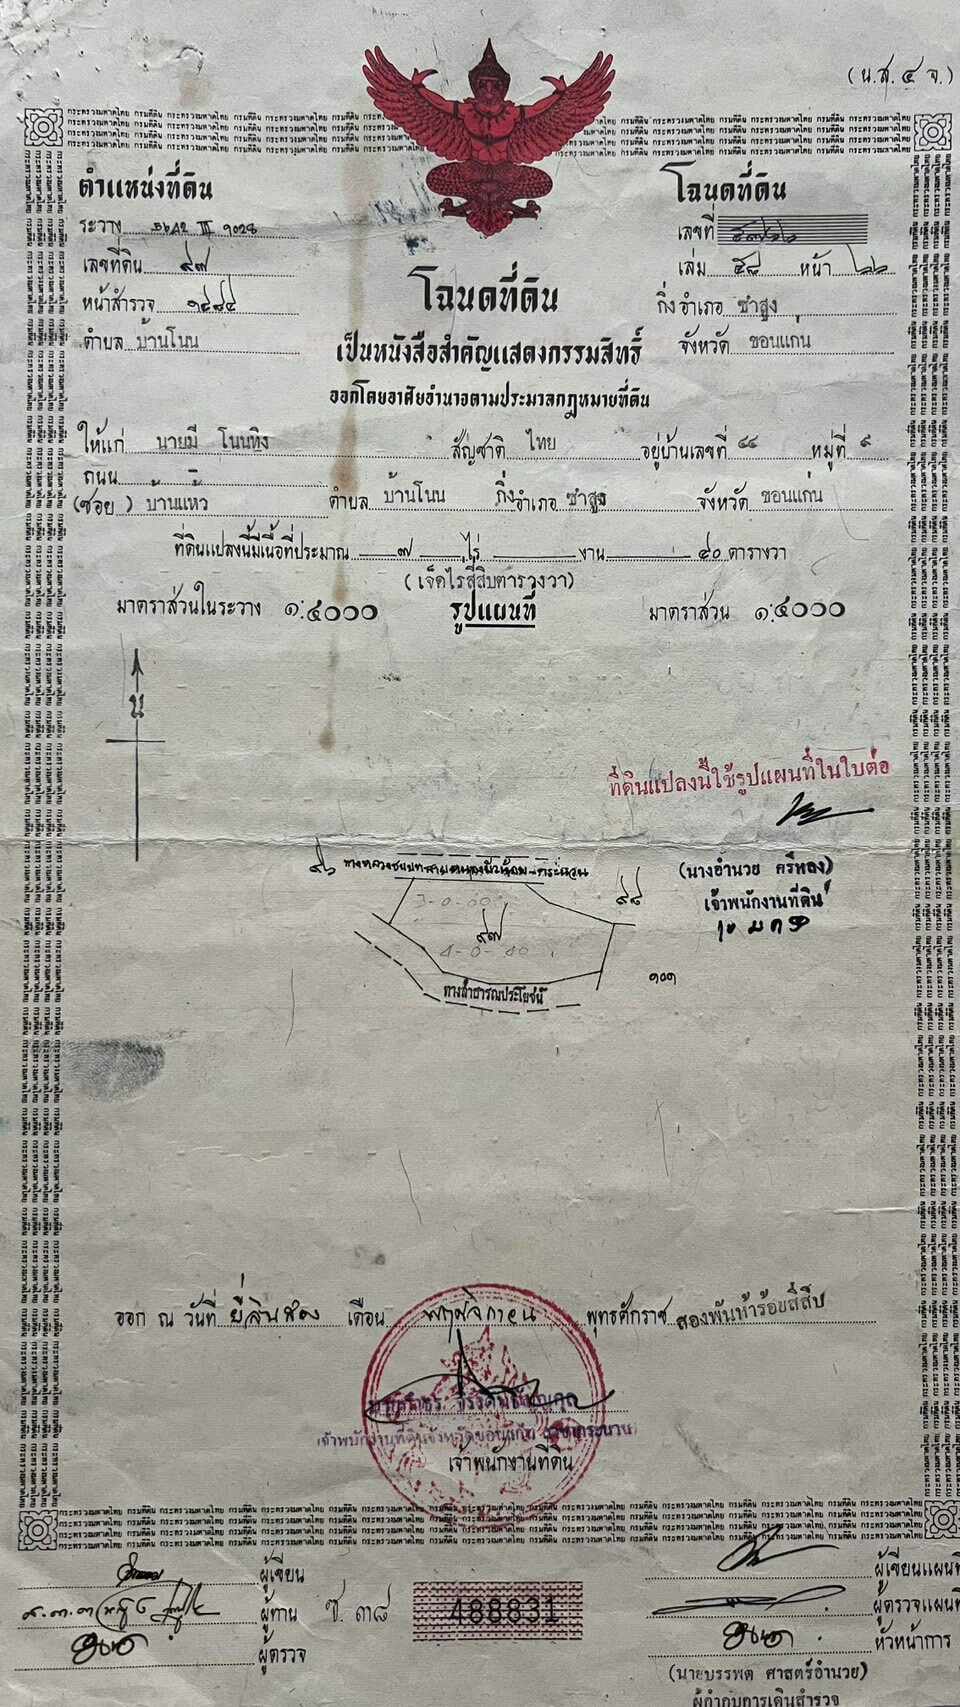 (น.ส.๔ จ.)
ตำแหน่งที่ดิน
โฉนดที่ดิน
ระวาง III
เลขที่
เลขที่ดิน ๙๗
เล่ม ๕๘ หน้า ๖๖
หน้าสำรวจ ๑๔๘๔
โฉนดที่ดิน
กิ่งอำเภอ ซำสูง
ตำบล บ้านโนน
เป็นหนังสือสำคัญแสดงกรรมสิทธิ์
จังหวัด ขอนแก่น
ออกโดยอาศัยอำนาจตามประมวลกฎหมายที่ดิน
ให้แก่ นายมี โนนทิง สัญชาติ ไทย อยู่บ้านเลขที่ ๔๔ หมู่ที่ ๙
ถนน -
(ซอย) บ้านแห้ว ตำบล บ้านโนน กิ่งอำเภอ ซำสูง จังหวัด ขอนแก่น
ที่ดินแปลงนี้มีเนื้อที่ประมาณ ๗ ไร่ งาน ๔๐ ตารางวา
(เจ็ดไร่สี่สิบตารางวา)
มาตราส่วนในระวาง ๑:๔๐๐๐ รูปแผนที่ มาตราส่วน ๑:๔๐๐๐
น
ที่ดินแปลงนี้ใช้รูปแผนที่ในใบต่อ
๙๖
(นางอำนวย ศรีหลง)
เจ้าพนักงานที่ดิน
๙๘
3-0-00
๙๗
4-0-40
๑๐๑
ทางสาธารณประโยชน์
ออก ณ วันที่ ยี่สิบสอง เดือน พฤศจิกายน พุทธศักราช สองพันห้าร้อยสี่สิบ
เจ้าพนักงานที่ดิน
ผู้เขียน
ผู้เขียนแผนที่
ผู้ทาน
ซ. ๓๘
488831
ผู้ตรวจแผนที่
ผู้ตรวจ
หัวหน้าการ
(นายบรรพต ศาสตร์อำนวย)
ผู้กำกับการเดินสำรวจ